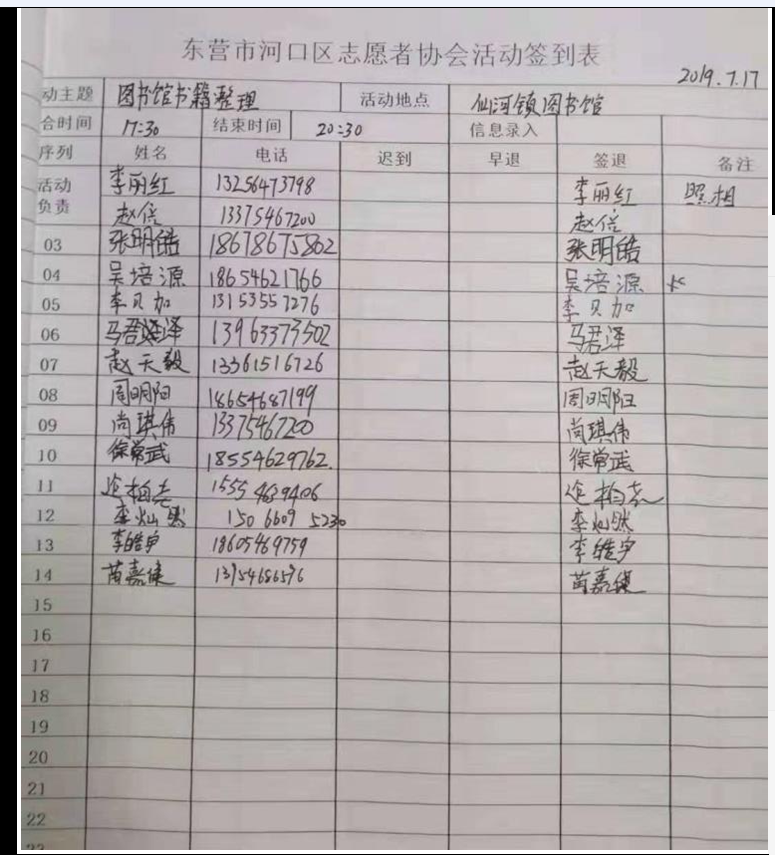 东营市河口区志愿者协会活动签到表
2019.7.17
动主题 图书馆书籍整理 活动地点 仙河镇图书馆
合时间 17:30 结束时间 20:30 信息录入
序列 姓名 电话 迟到 早退 签退 备注
活动负责 李丽红 13256473798 李丽红 照相
赵信 13375467200 赵信
03 张明皓 18678675862 张明皓
04 吴培源 18654621766 吴培源
05 李贝加 13153557276 李贝加
06 马君泽 13963373502 马君泽
07 赵天毅 13361516726 赵天毅
08 周明阳 18654687199 周明阳
09 尚琪伟 13375467200 尚琪伟
10 徐常武 18554629762. 徐常武
11 柏 1555 4639406 柏
12 李灿然 150 6609 5230 李灿然
13 李皓宇 18605469759 李皓宇
14 苗嘉健 13954686596 苗嘉健
15
16
17
18
19
20
21
22
23